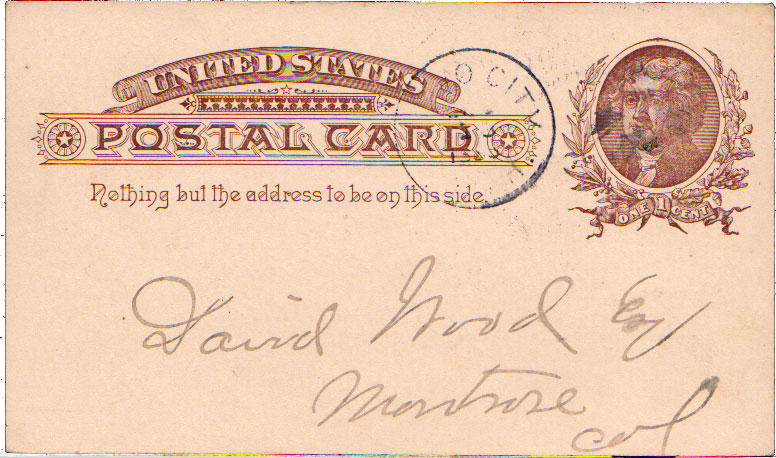 UNITED STATES
POSTAL CARD
Nothing but the address to be on this side
O CITY
ONE 1 CENT
David Wood Esq
Montrose
Col